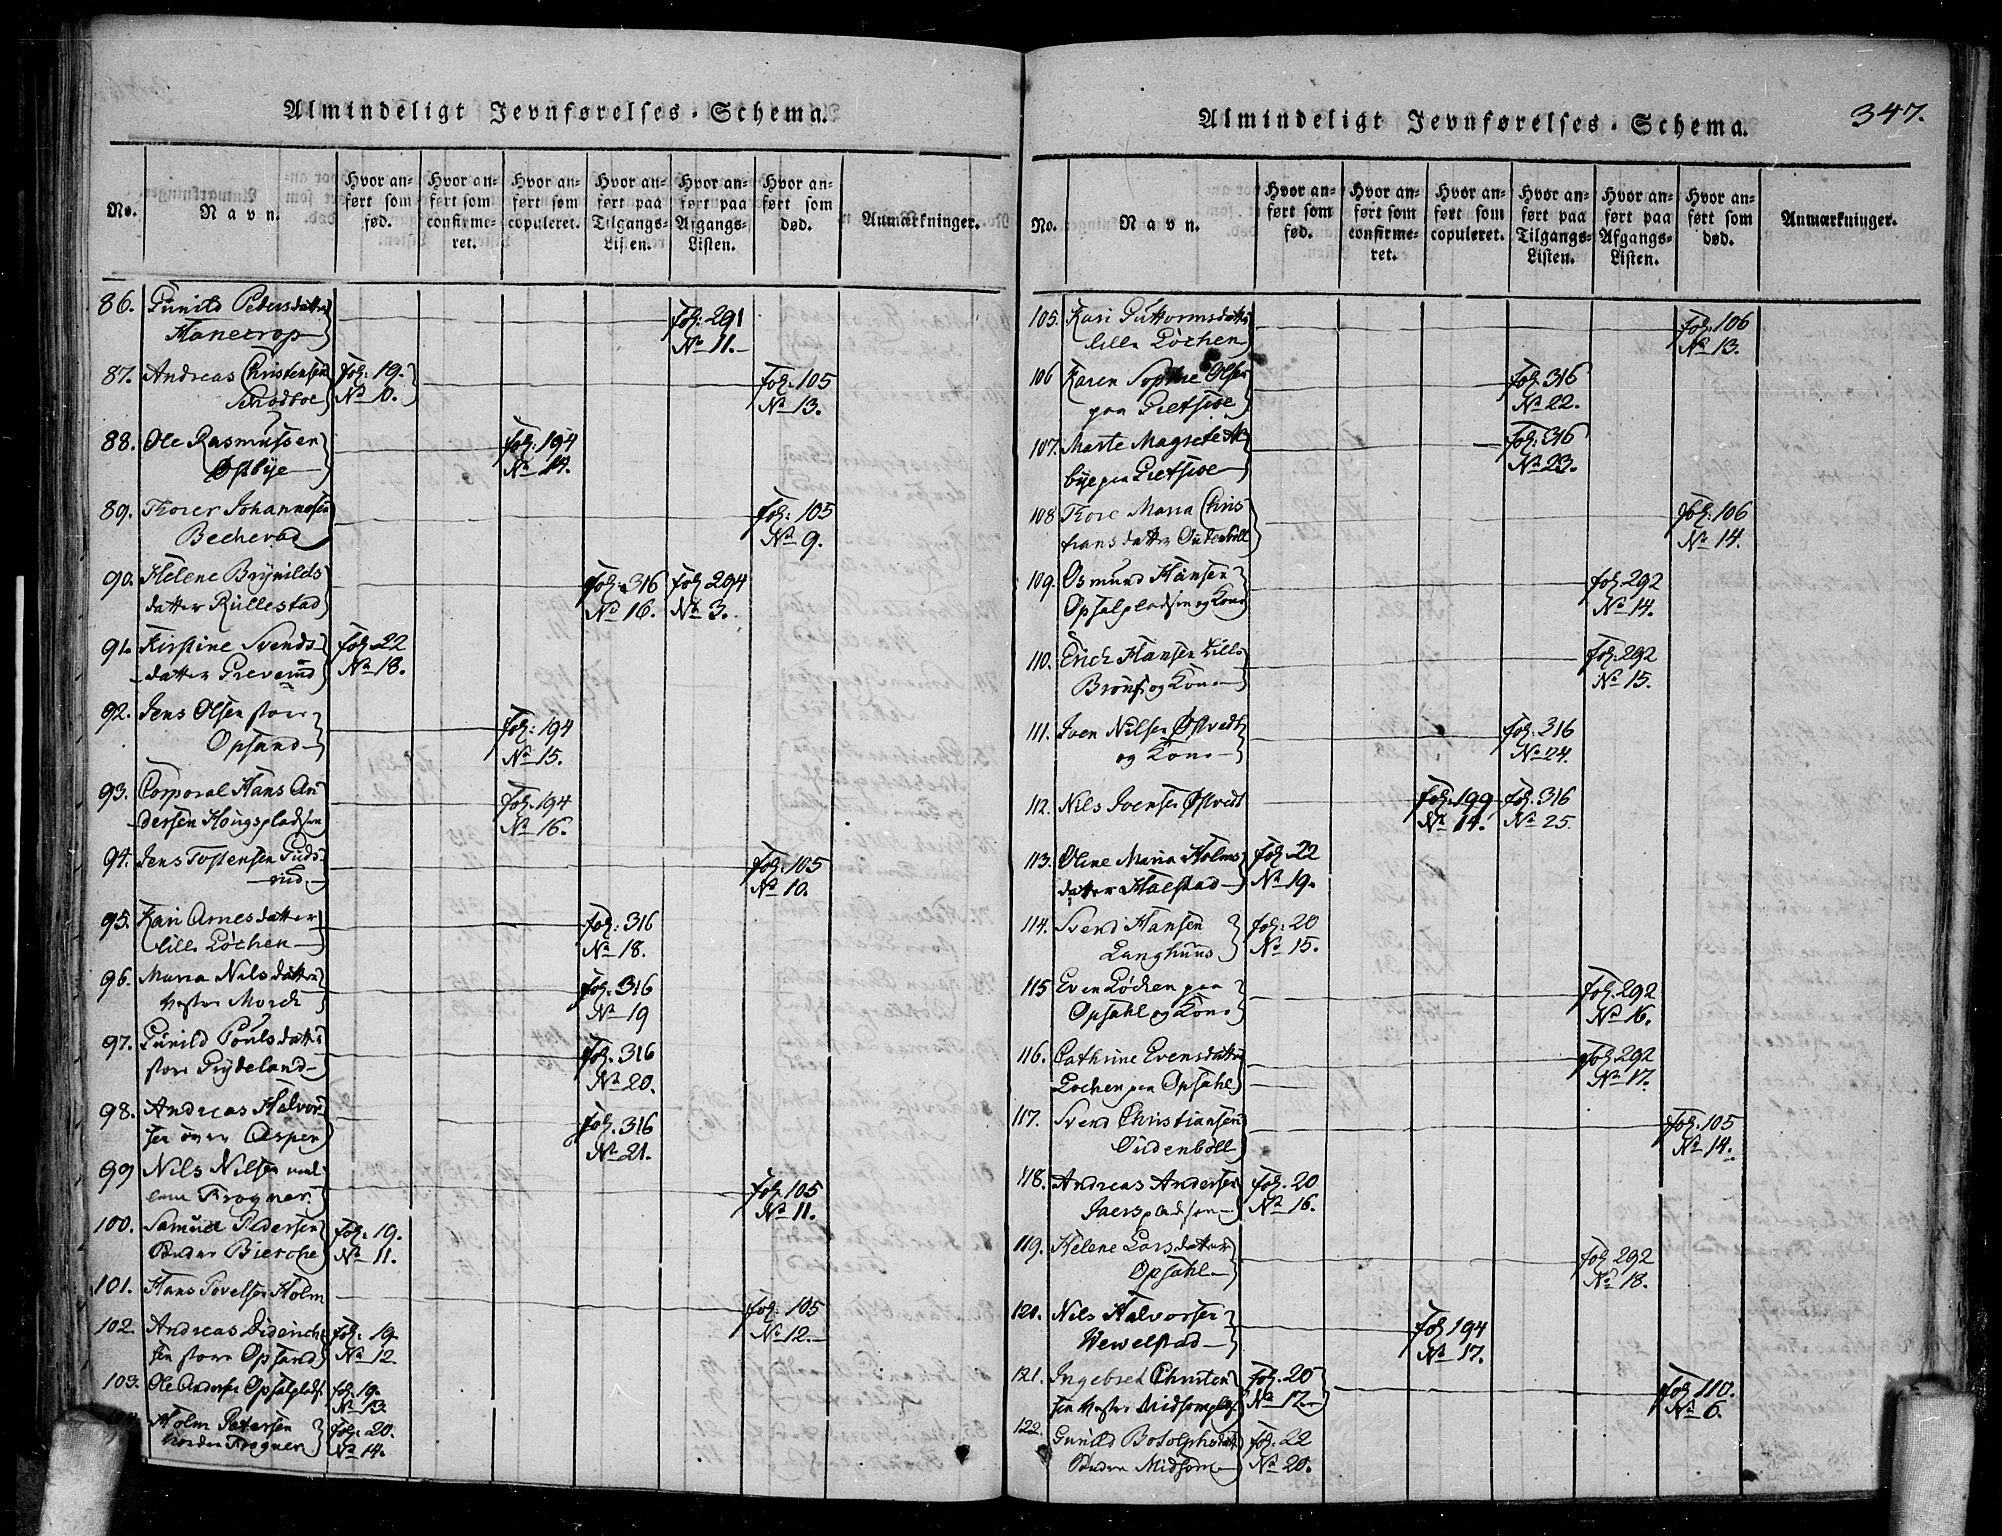 Almindeligt Jevnførelses-Schema.
No.
Navn.
Hvor an-
ført som
fød.
Hvor an-
ført som
confirme-
ret.
Hvor an-
ført som
copuleret.
Hvor an-
ført paa
Tilgangs-
Listen.
Hvor an-
ført paa
Afgangs-
Listen.
Hvor an-
ført som
død.
Anmærkninger.
86. Gunild Pedersdatter fol: 291
No 11.
87. Andreas Christensen fol: 19. fol: 105
No 10. No 13.
88. Ole Rasmussen fol: 194
Østbye No 14.
89. Thorer Johannesen fol: 105
Becherad No 9.
90. Helene Brynilds fol: 316 fol: 294
datter Rullestad No 16. No 3.
91. Kirstine Svends- fol: 22
datter Greverud No 18.
92. Jens Olsen store fol: 194
Opsand No 15.
93. Corporal Hans An fol: 194
dersen Hougspladsen No 16.
94. Jens Tostensen Guds- fol: 105
rud No 10.
95. Kari Arnesdatter fol: 316
lille Løchen No 18.
96. Maria Nilsdatter fol: 316
Vestre Morch No 19
97. Gunild Poulsdatter fol. 316
store Grydeland No 20.
98. Andreas Halvor fol. 316
sen øvre Aspen No 21.
99 Nils Nilsen mel- fol. 105
lem Frogner. No 11.
100. Samuel Pedersen fol: 19.
Søndre Bierche No 11.
101. Hans Povelsen Holm fol: 105
No 12.
102. Andreas Diderich fol: 19.
sen store Opsand No 12.
103. Ole Andersen Opsalplads fol. 19.
No 13.
Holm Petersen fol: 20.
Nordre Frogner No 14.
Almindeligt Jevnførelses-Schema.
347.
No.
Navn.
Hvor an-
ført som
fød.
Hvor an-
ført som
confirme-
ret.
Hvor an-
ført som
copuleret.
Hvor an-
ført paa
Tilgangs-
Listen.
Hvor an-
ført paa
Afgangs-
Listen.
Hvor an-
ført som
død.
Anmærkninger.
105. Kari Guttormsdatter fol. 106
lille Løchen No 13.
106 Karen Sophie Olsen fol. 316
paa No 22.
107. Marte Magrete fol: 316
bye paa No 23.
108 Thore Maria Chris fol. 106
tiansdatter Oudenböll No 14.
109. Osmund Hansen fol. 292
Opsalpladsen og Kone No 14.
110. Erich Hansen Lille fol. 292
og Kone No 15.
111. Iven Nilsen Østvedt fol. 316
og Kone No 24.
112. Nils Ivensen Østvedt fol. 199 fol. 316
No 14. No 25.
113. Oline Maria Holms fol. 22
datter Halstad No 19.
114. Svend Hansen fol: 20
Langhuus No 15.
115 Even Løchen paa fol. 292
Opsahl og Kone No 16.
116. Cathrine Evensdatter fol. 292
Løchen paa Opsahl No 17.
117. Svend Christiansen fol. 105
Oudenböll No 14.
118. Andreas Andersen fol. 20
Jaerspladsen No 16.
119. Helene Larsdatter fol 292
Opsahl No 18.
120. Nils Halvorsen fol 194
Wewelstad No 17.
121. Ingebret Christen fol. 20 fol. 110.
sen Vestre No 17. No 6.
122. Gunild Botolphsdatt fol. 22
Søndre Midsom No 20.